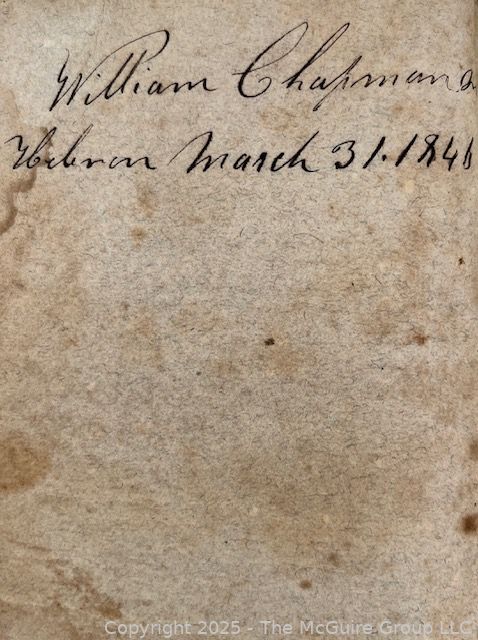 William Chapmans
Hebron March 31. 1846
Copyright 2025 - The McGuire Group LLC